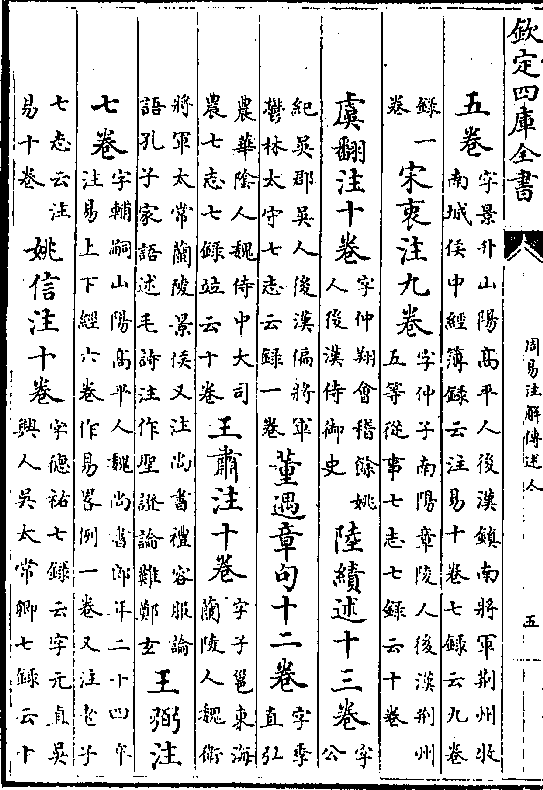 欽定四庫全書
周易注解傳述人
五
五卷
字景升山陽高平人後漢鎮南將軍荆州牧
南城侯中經簿録云注易十卷七録云九卷
録一
卷
宋衷注九卷
字仲子南陽章陵人後漢荆州
五等從事七志七録云十卷
虞翻注十卷
字仲翔會稽餘姚
人後漢侍御史
陸績述十三卷
字
公
紀吳郡吳人後漢偏將軍
鬱林太守七志云録一卷
董遇章句十二卷
字季
直弘
農華陰人魏侍中大司
農七志七録竝云十卷
王肅注十卷
字子邕東海
蘭陵人魏衛
將軍太常蘭陵景侯又注尚書禮容服論
語孔子家語述毛詩注作聖證論難鄭玄
王弼注
七卷
字輔嗣山陽高平人魏尚書郎年二十四卒
注易上下經六卷作易畧例一卷又注老子
七志云注
易十卷
姚信注十卷
字德祐七録云字元直吳
興人吳太常卿七録云十